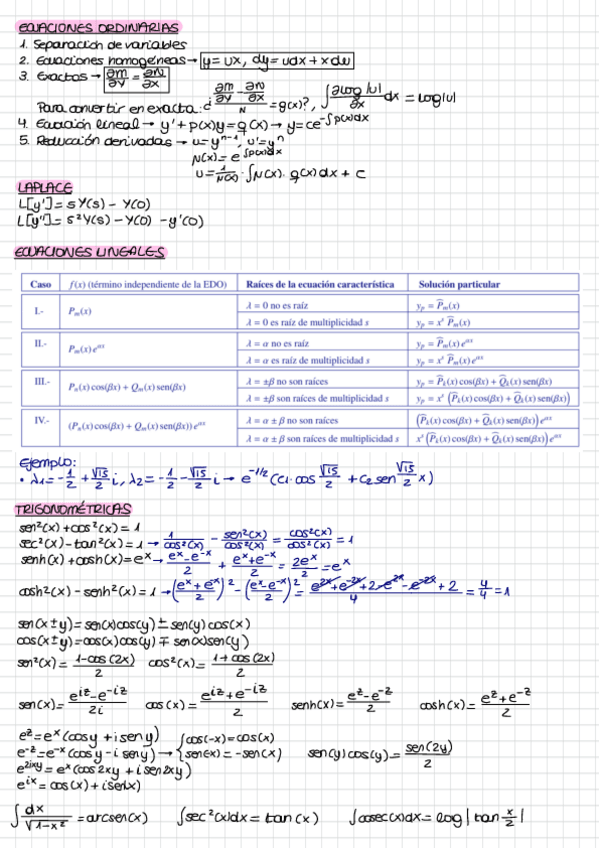 ECUACIONES ORDINARIAS
1. Separación de variables
2. Ecuaciones homogéneas → y = ux, dy = udx + xdu
3. Exactas → ∂m/∂y = ∂N/∂x
Para convertir en exacta: ¿ (∂m/∂y - ∂N/∂x)/N = g(x)?, ∫ ∂log|u|/∂x dx = log|u|
4. Ecuación lineal → y' + p(x)y = q(x) → y = ce^(-∫p(x)dx)
5. Reducción derivadas → u = y^(n-1), u' = y^n
N(x) = e^(∫p(x)dx)
u = 1/N(x) · ∫N(x) · q(x)dx + c
LAPLACE
L[y'] = sY(s) - Y(0)
L[y''] = s²Y(s) - Y(0) - y'(0)
ECUACIONES LINEALES
Caso f(x) (término independiente de la EDO) Raíces de la ecuación característica Solución particular
I.- Pm(x) λ = 0 no es raíz yp = P̂m(x)
λ = 0 es raíz de multiplicidad s yp = x^s P̂m(x)
II.- Pm(x) e^(αx) λ = α no es raíz yp = P̂m(x) e^(αx)
λ = α es raíz de multiplicidad s yp = x^s P̂m(x) e^(αx)
III.- Pn(x) cos(βx) + Qm(x) sen(βx) λ = ±β no son raíces yp = P̂k(x) cos(βx) + Q̂k(x) sen(βx)
λ = ±β son raíces de multiplicidad s yp = x^s (P̂k(x) cos(βx) + Q̂k(x) sen(βx))
IV.- (Pn(x) cos(βx) + Qm(x) sen(βx)) e^(αx) λ = α ± β no son raíces (P̂k(x) cos(βx) + Q̂k(x) sen(βx)) e^(αx)
λ = α ± β son raíces de multiplicidad s x^s (P̂k(x) cos(βx) + Q̂k(x) sen(βx)) e^(αx)
Ejemplo:
• λ1 = -1/2 + √15/2 i, λ2 = -1/2 - √15/2 i → e^(-1/2) (c1·cos √15/2 + c2 sen √15/2 x)
TRIGONOMÉTRICAS
sen²(x) + cos²(x) = 1
sec²(x) - tan²(x) = 1 → 1/cos²(x) - sen²(x)/cos²(x) = cos²(x)/cos²(x) = 1
senh(x) + cosh(x) = e^x → (e^x - e^-x)/2 + (e^x + e^-x)/2 = 2e^x/2 = e^x
cosh²(x) - senh²(x) = 1 → ((e^x + e^-x)/2)² - ((e^x - e^-x)/2)² = (e^2x + e^-2x + 2 - e^2x - e^-2x + 2)/4 = 4/4 = 1
sen(x ± y) = sen(x)cos(y) ± sen(y)cos(x)
cos(x ± y) = cos(x)cos(y) ∓ sen(x)sen(y)
sen²(x) = (1 - cos(2x))/2 cos²(x) = (1 + cos(2x))/2
sen(x) = (e^iz - e^-iz)/2i cos(x) = (e^iz + e^-iz)/2 senh(x) = (e^z - e^-z)/2 cosh(x) = (e^z + e^-z)/2
e^z = e^x (cosy + i seny) { cos(-x) = cos(x)
e^-z = e^-x (cosy - i seny) → { sen(-x) = -sen(x) sen(y)cos(y) = sen(2y)/2
e^(2ixy) = e^x (cos2xy + isen2xy)
e^ix = cos(x) + isen(x)
∫ dx/√(1-x²) = arcsen(x) ∫sec²(x)dx = tan(x) ∫cosec(x)dx = log|tan x/2|